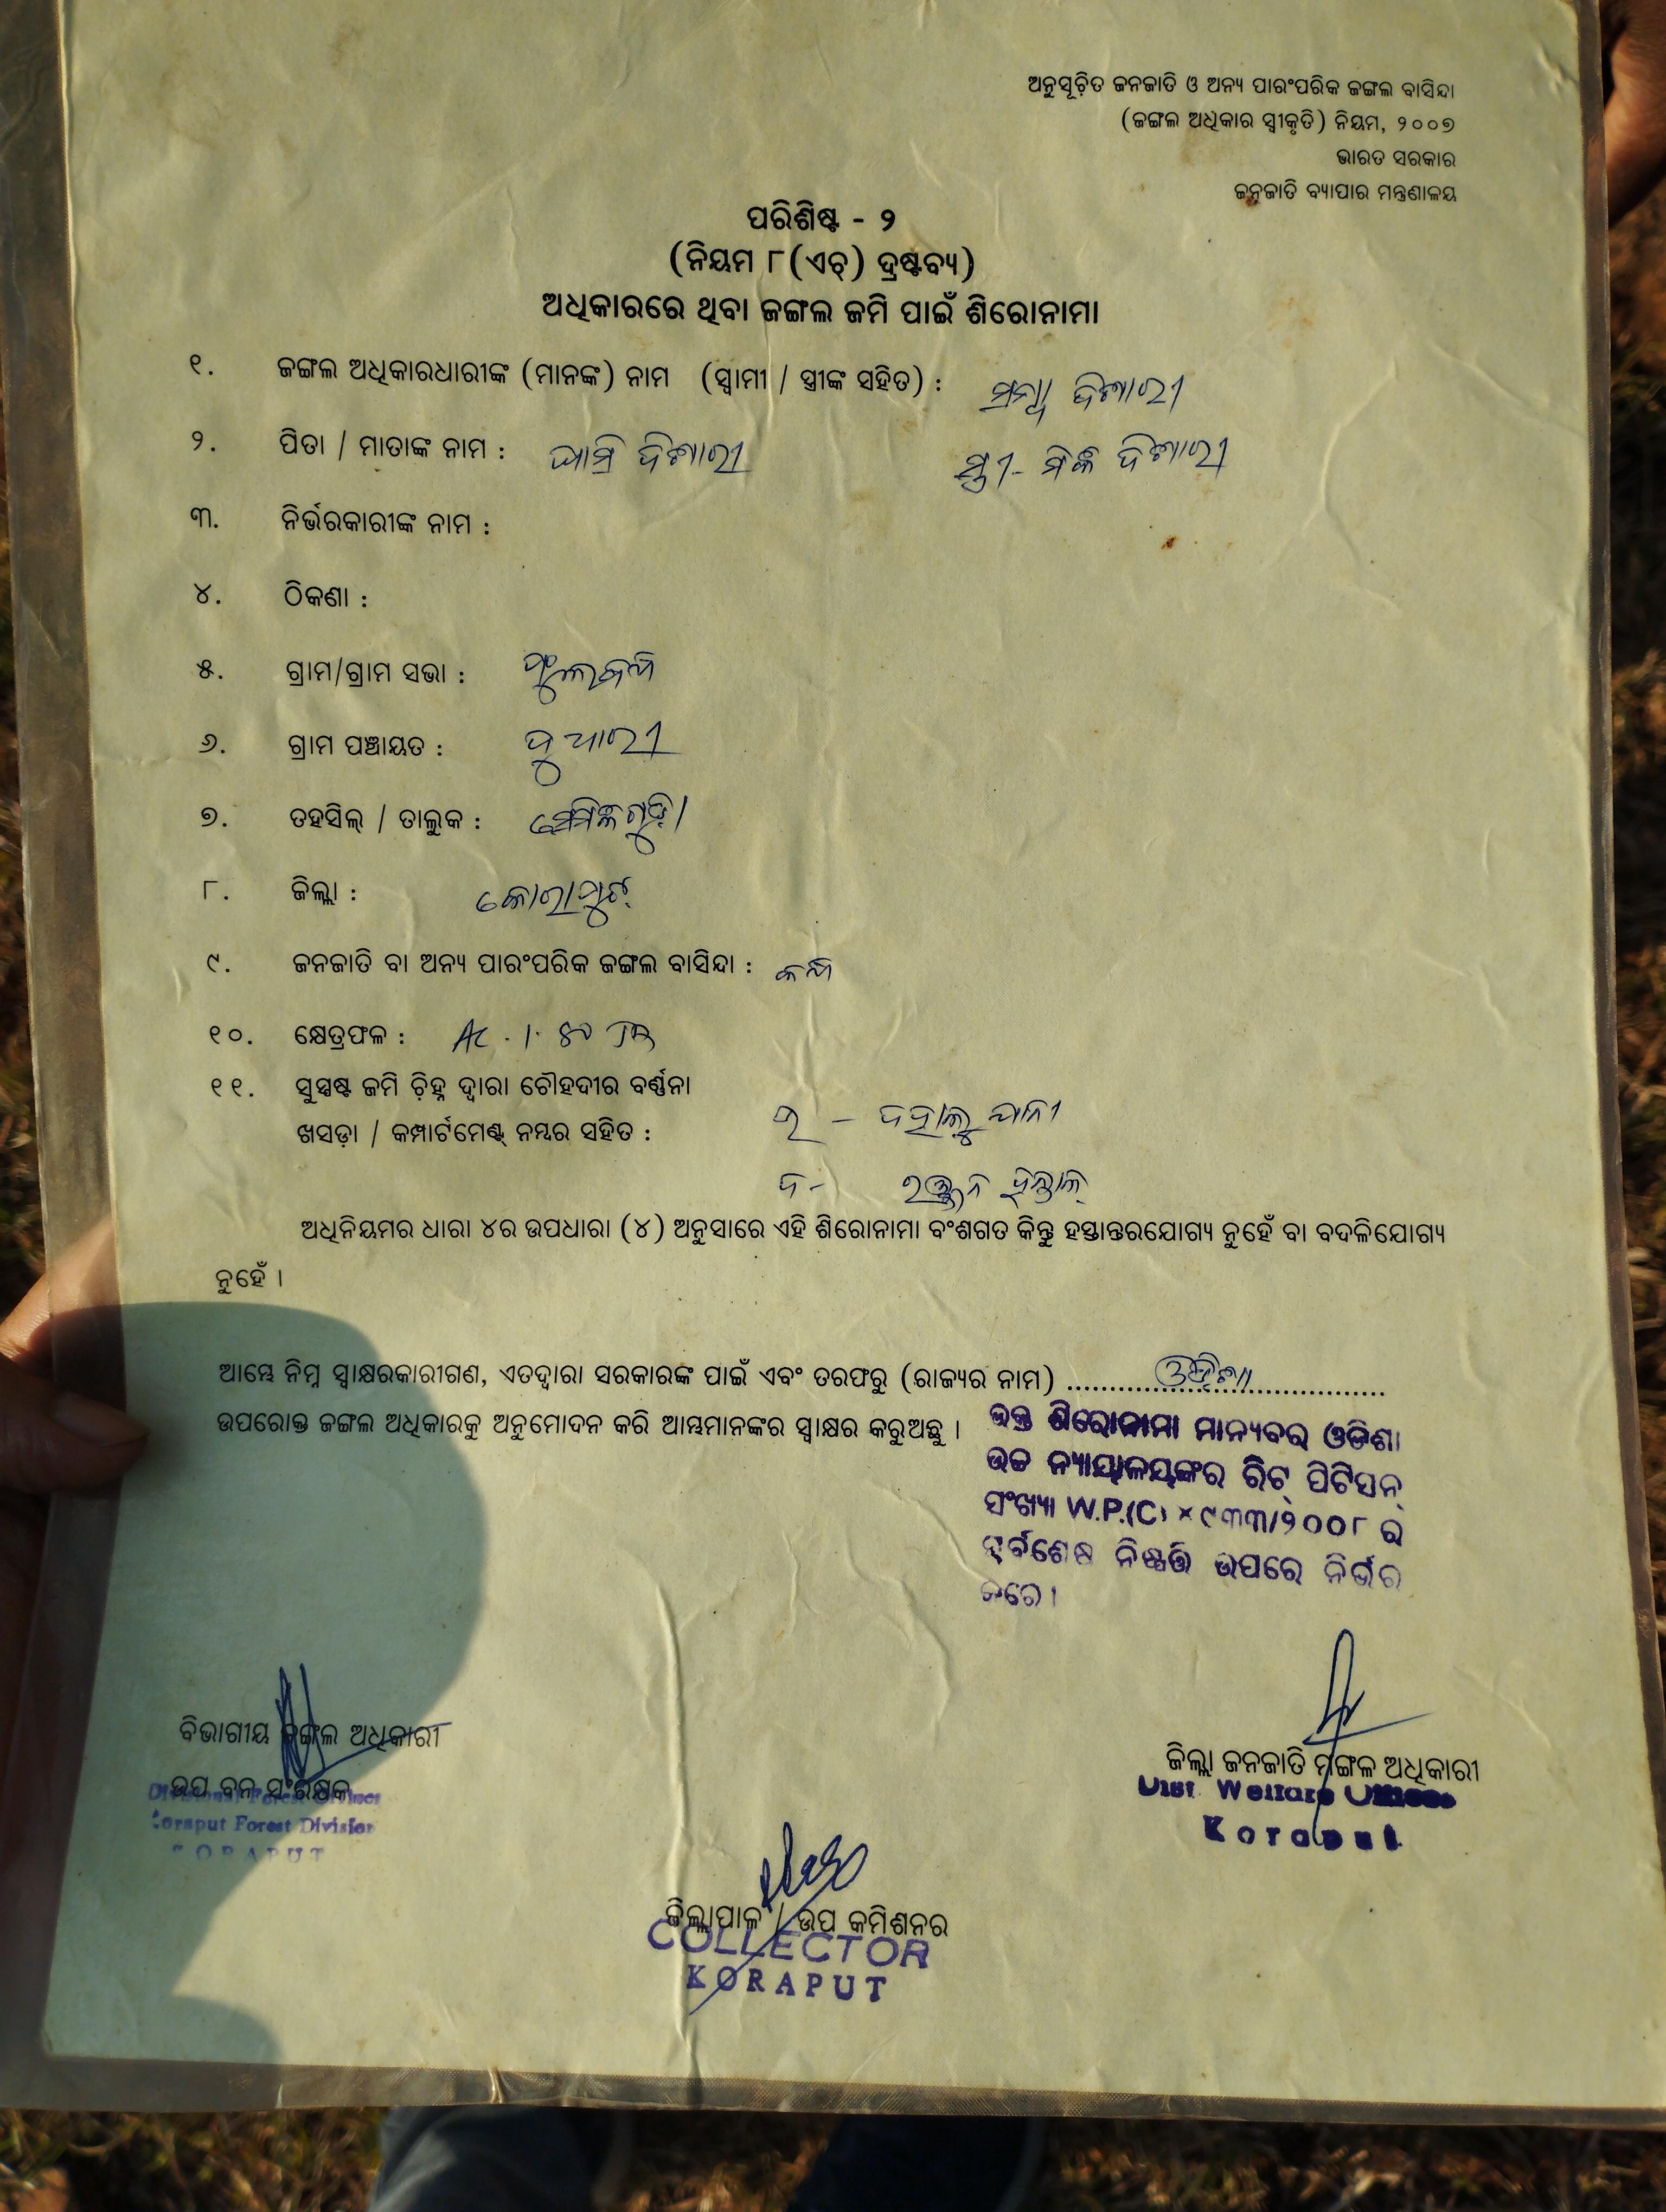 ଅନୁସୂଚିତ ଜନଜାତି ଓ ଅନ୍ୟ ପାରଂପରିକ ଜଙ୍ଗଲ ବାସିନ୍ଦା
(ଜଙ୍ଗଲ ଅଧିକାର ସ୍ୱୀକୃତି) ନିୟମ, ୨୦୦୭
ଭାରତ ସରକାର
ଜନଜାତି ବ୍ୟାପାର ମନ୍ତ୍ରଣାଳୟ
ପରିଶିଷ୍ଟ - ୨
(ନିୟମ ୮(ଏଚ୍) ଦ୍ରଷ୍ଟବ୍ୟ)
ଅଧିକାରରେ ଥିବା ଜଙ୍ଗଲ ଜମି ପାଇଁ ଶିରୋନାମା
୧. ଜଙ୍ଗଲ ଅଧିକାରଧାରୀଙ୍କ (ମାନଙ୍କ) ନାମ (ସ୍ୱାମୀ / ସ୍ତ୍ରୀଙ୍କ ସହିତ) : ଦିଶାରୀ
୨. ପିତା / ମାତାଙ୍କ ନାମ : ଦିଶାରୀ ସ୍ତ୍ରୀ - ଦିଶାରୀ
୩. ନିର୍ଭରକାରୀଙ୍କ ନାମ :
୪. ଠିକଣା :
୫. ଗ୍ରାମ/ଗ୍ରାମ ସଭା :
୬. ଗ୍ରାମ ପଞ୍ଚାୟତ :
୭. ତହସିଲ୍ / ତାଲୁକ : ସେମିଳିଗୁଡ଼ା
୮. ଜିଲ୍ଲା : କୋରାପୁଟ୍
୯. ଜନଜାତି ବା ଅନ୍ୟ ପାରଂପରିକ ଜଙ୍ଗଲ ବାସିନ୍ଦା : କନ୍ଧ
୧୦. କ୍ଷେତ୍ରଫଳ : Ac . 1.
୧୧. ସୁସ୍ପଷ୍ଟ ଜମି ଚିହ୍ନ ଦ୍ୱାରା ଚୌହଦୀର ବର୍ଣ୍ଣନା
ଖସଡ଼ା / କମ୍ପାର୍ଟମେଣ୍ଟ୍ ନମ୍ବର ସହିତ :
ଦ -
ଅଧିନିୟମର ଧାରା ୪ର ଉପଧାରା (୪) ଅନୁସାରେ ଏହି ଶିରୋନାମା ବଂଶଗତ କିନ୍ତୁ ହସ୍ତାନ୍ତରଯୋଗ୍ୟ ନୁହେଁ ବା ବଦଳିଯୋଗ୍ୟ
ନୁହେଁ ।
ଆମ୍ଭେ ନିମ୍ନ ସ୍ୱାକ୍ଷରକାରୀଗଣ, ଏତଦ୍ୱାରା ସରକାରଙ୍କ ପାଇଁ ଏବଂ ତରଫରୁ (ରାଜ୍ୟର ନାମ) ଓଡ଼ିଶା
ଉପରୋକ୍ତ ଜଙ୍ଗଲ ଅଧିକାରକୁ ଅନୁମୋଦନ କରି ଆମ୍ଭମାନଙ୍କର ସ୍ୱାକ୍ଷର କରୁଅଛୁ ।
ଉକ୍ତ ଶିରୋନାମା ମାନ୍ୟବର ଓଡିଶା
ଉଚ୍ଚ ନ୍ୟାୟାଳୟଙ୍କର ରିଟ୍ ପିଟିସନ୍
ସଂଖ୍ୟା W.P.(C) ୪୯୩୩/୨୦୦୮ ର
ସର୍ବଶେଷ ନିଷ୍ପତ୍ତି ଉପରେ ନିର୍ଭର
କରେ ।
ବିଭାଗୀୟ ଜଙ୍ଗଲ ଅଧିକାରୀ
ଉପ ବନ ସଂରକ୍ଷକ
Divisional Forest Officer
Koraput Forest Division
KORAPUT
ଜିଲ୍ଲା ଜନଜାତି ମଙ୍ଗଳ ଅଧିକାରୀ
Dist. Welfare Officer
Koraput
ଜିଲ୍ଲାପାଳ / ଉପ କମିଶନର
COLLECTOR
KORAPUT